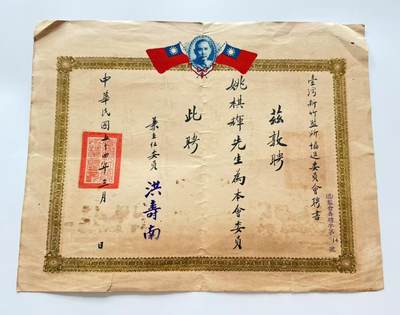 臺灣新竹監所協進委員會聘書
茲敦聘
姚棋輝先生為本會委員
此聘
兼主任委員 洪壽南
中華民國五十四年三月 日